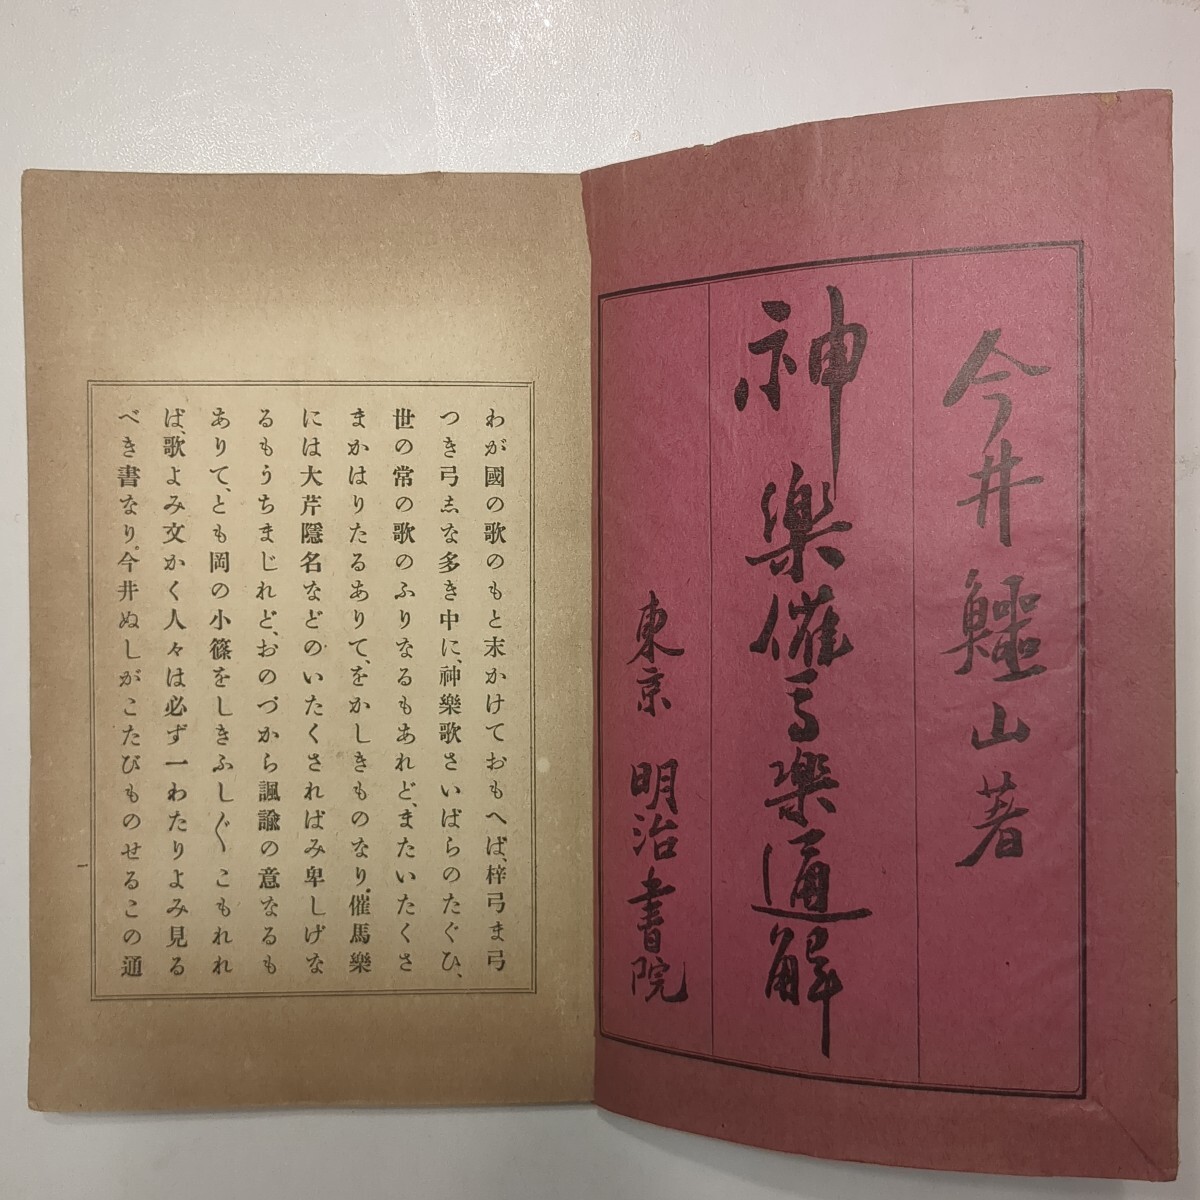 今井鼴山著
神樂催馬樂通解
東京 明治書院
わが國の歌のもと末かけておもへば、梓弓ま弓
つき弓志な多き中に、神樂歌さいばらのたぐひ、
世の常の歌のふりなるもあれど、またいたくさ
まかはりたるありて、をかしきものなり。催馬樂
には大芹隱名などのいたくさればみ卑しげな
るもうちまじれど、おのづから諷諭の意なるも
ありて、とも岡の小篠をしきふし〲こもれれ
ば、歌よみ文かく人々は必ず一わたりよみ見る
べき書なり。今井ぬしがこたびものせるこの通